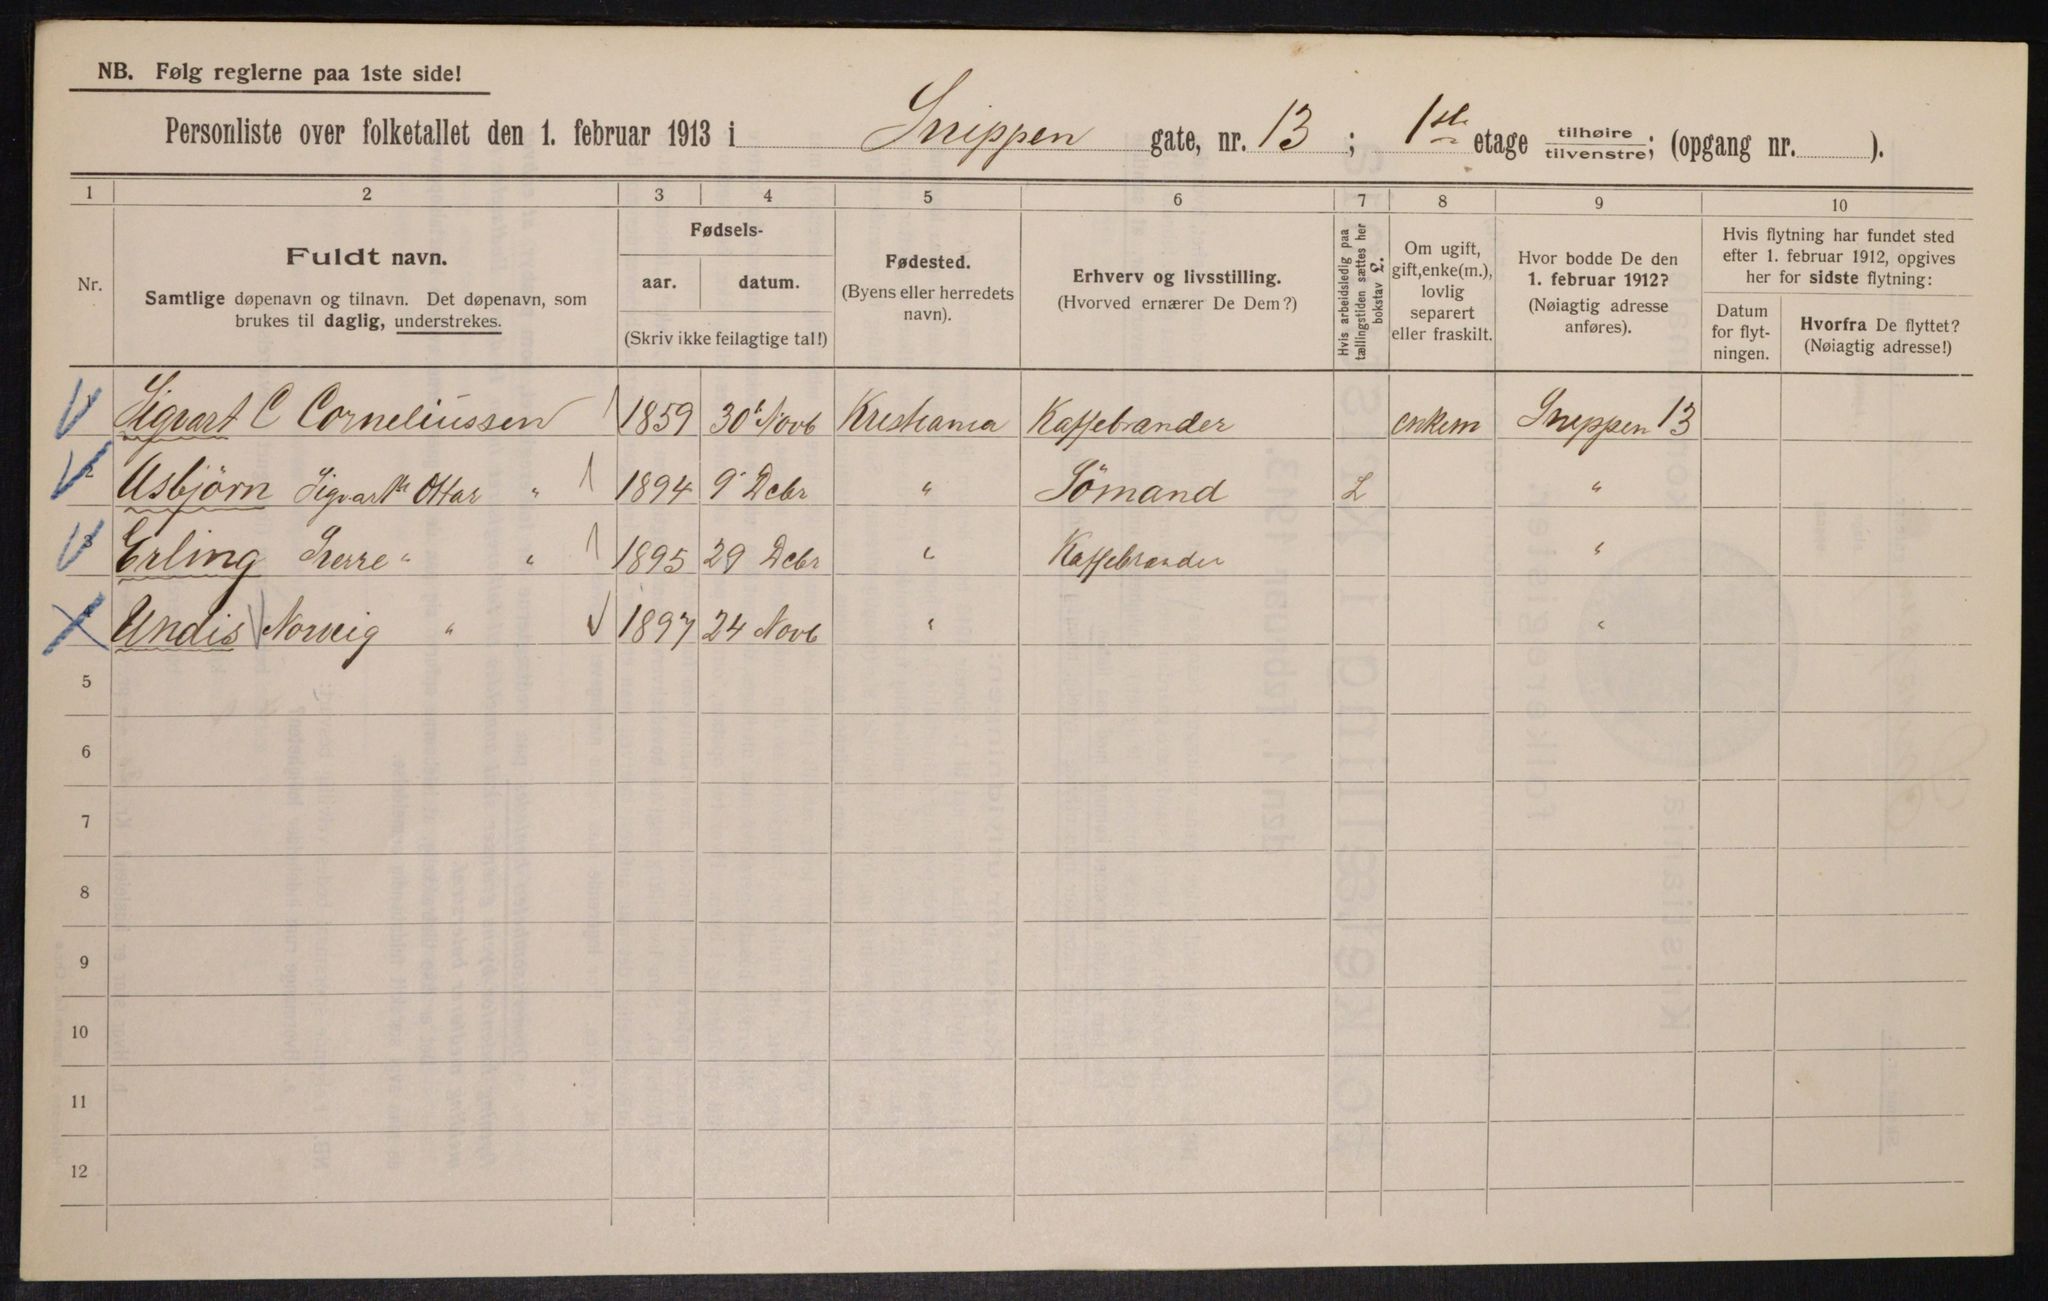 NB. Følg reglerne paa 1ste side!
Personliste over folketallet den 1. februar 1913 i Sneppen gate, nr. 13 ; 1ste etage tilhøire tilvenstre; (opgang nr. ).
1 2 3 4 5 6 7 8 9 10
Nr.
Fuldt navn.
Samtlige døpenavn og tilnavn. Det døpenavn, som
brukes til daglig, understrekes.
Fødsels-
aar. datum.
(Skriv ikke feilagtige tal!)
Fødested.
(Byens eller herredets
navn).
Erhverv og livsstilling.
(Hvorved ernærer De Dem?)
Hvis arbeidsledig paa
tællingstiden sættes her
bokstav L.
Om ugift,
gift, enke(m.),
lovlig
separert
eller fraskilt.
Hvor bodde De den
1. februar 1912?
(Nøiagtig adresse
anføres).
Hvis flytning har fundet sted
efter 1. februar 1912, opgives
her for sidste flytning:
Datum
for flyt-
ningen.
Hvorfra De flyttet?
(Nøiagtig adresse!)
1 Sigvart C Corneliussen 1859 30' Novb Kristiania Kaffebrander enkem Sneppen 13
2 Asbjörn Sigvart Ottar " 1894 9' Decbr " Sömand L "
3 Erling Sverre " " 1895 29 Decbr " Kaffebrander "
Undis Norveig " 1897 24 Novb " "
5
6
7
8
9
10
11
12